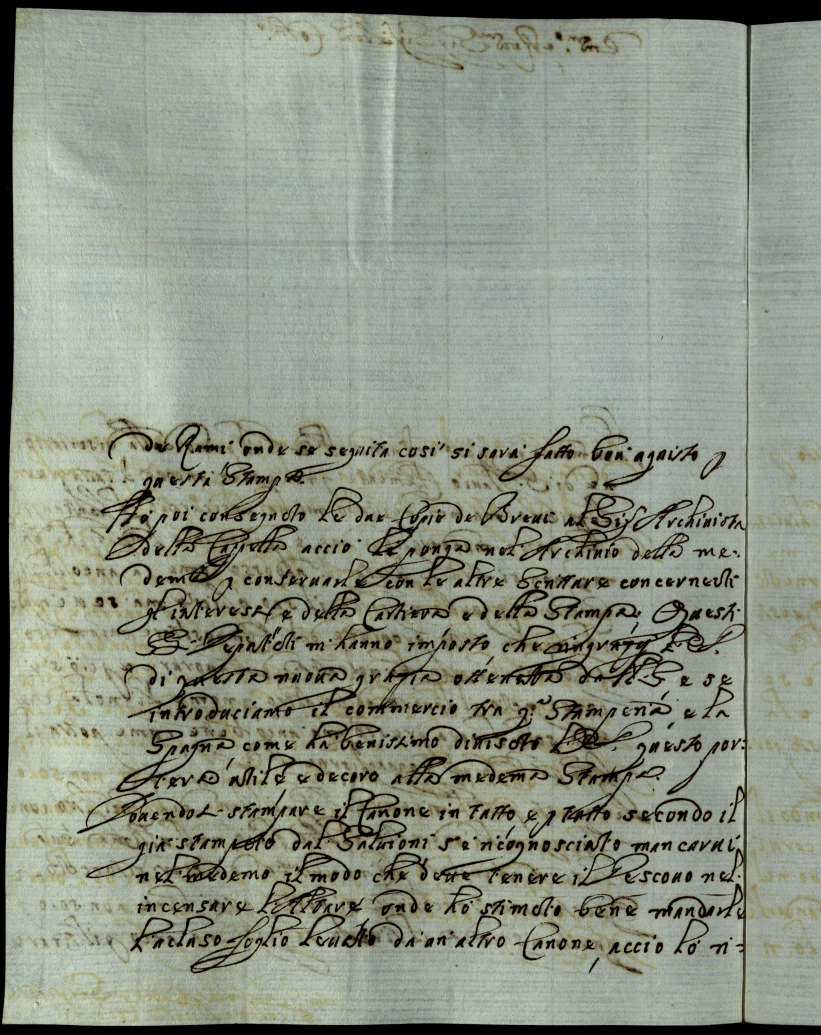 de Rami onde se seguita cosi si sarà fatto bon aquisto p
questa Stampa.
Hò poi consegnato le due Copie de Brevi al Sig.r Archivista
della Cappella acciò le ponga nel Archivio della me-
dema p conservarle con le altre Scritture concernenti
gl'interessi e della Cartiera e della Stampa. Questi
SS. Deputati m'hanno imposto che ringrazij V.S.
di questa nuova grazia ottenuta da N.S. e se
introduciamo il commercio tra q.a Stamperia, e la
Spagna come ha benissimo divisato V.S. questo por-
terà utile e decoro alla medema Stampa.
Dovendosi stampare il Canone in tutto e p tutto secondo il
già stampato dal Salvioni s'è ricognosciuto mancarvi
nel medemo il modo che deve tenere il Vescovo nel
incensare l'Altare onde hò stimato bene mandarle
l'acluso foglio levato da un altro Canone, acciò lo ri-